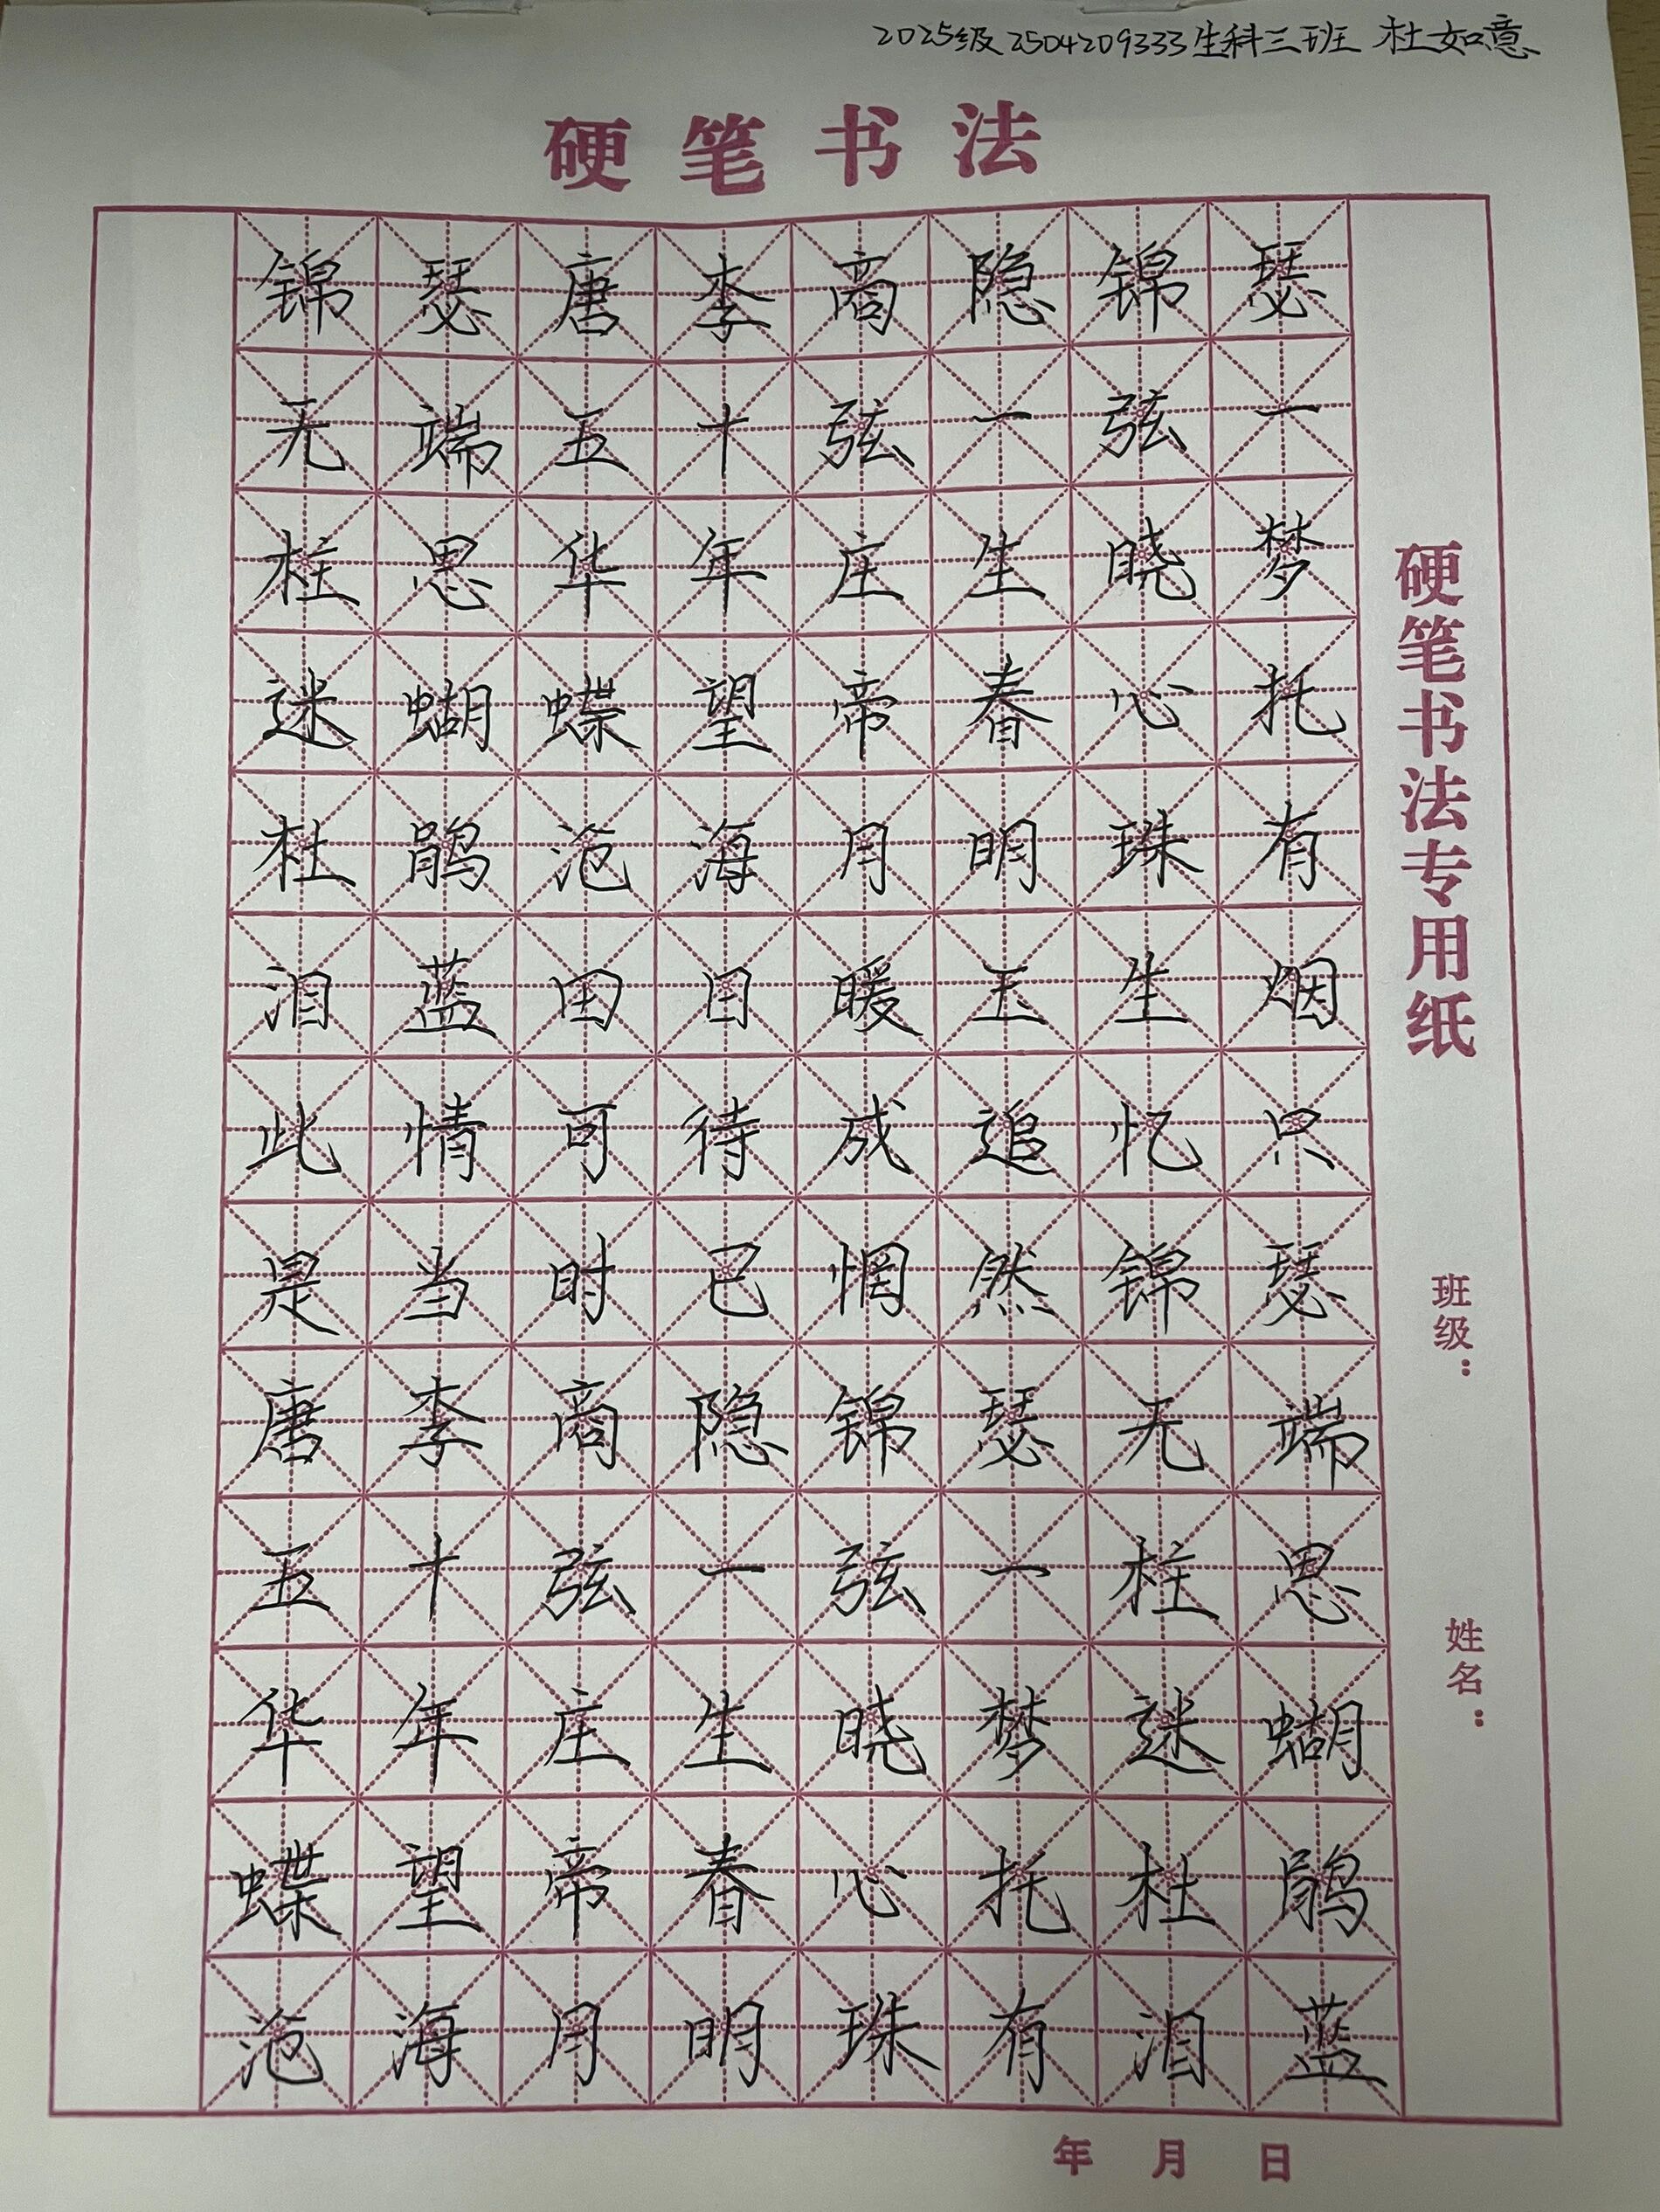 2025级2504209333生科三班 杜如意
硬笔书法
锦瑟唐李商隐锦瑟
无端五十弦一弦一
柱思华年庄生晓梦
迷蝴蝶望帝春心托
杜鹃沧海月明珠有
泪蓝田日暖玉生烟
此情可待成追忆只
是当时已惘然锦瑟
唐李商隐锦瑟无端
五十弦一弦一柱思
华年庄生晓梦迷蝴
蝶望帝春心托杜鹃
沧海月明珠有泪蓝
硬笔书法专用纸
班级：
姓名：
年 月 日